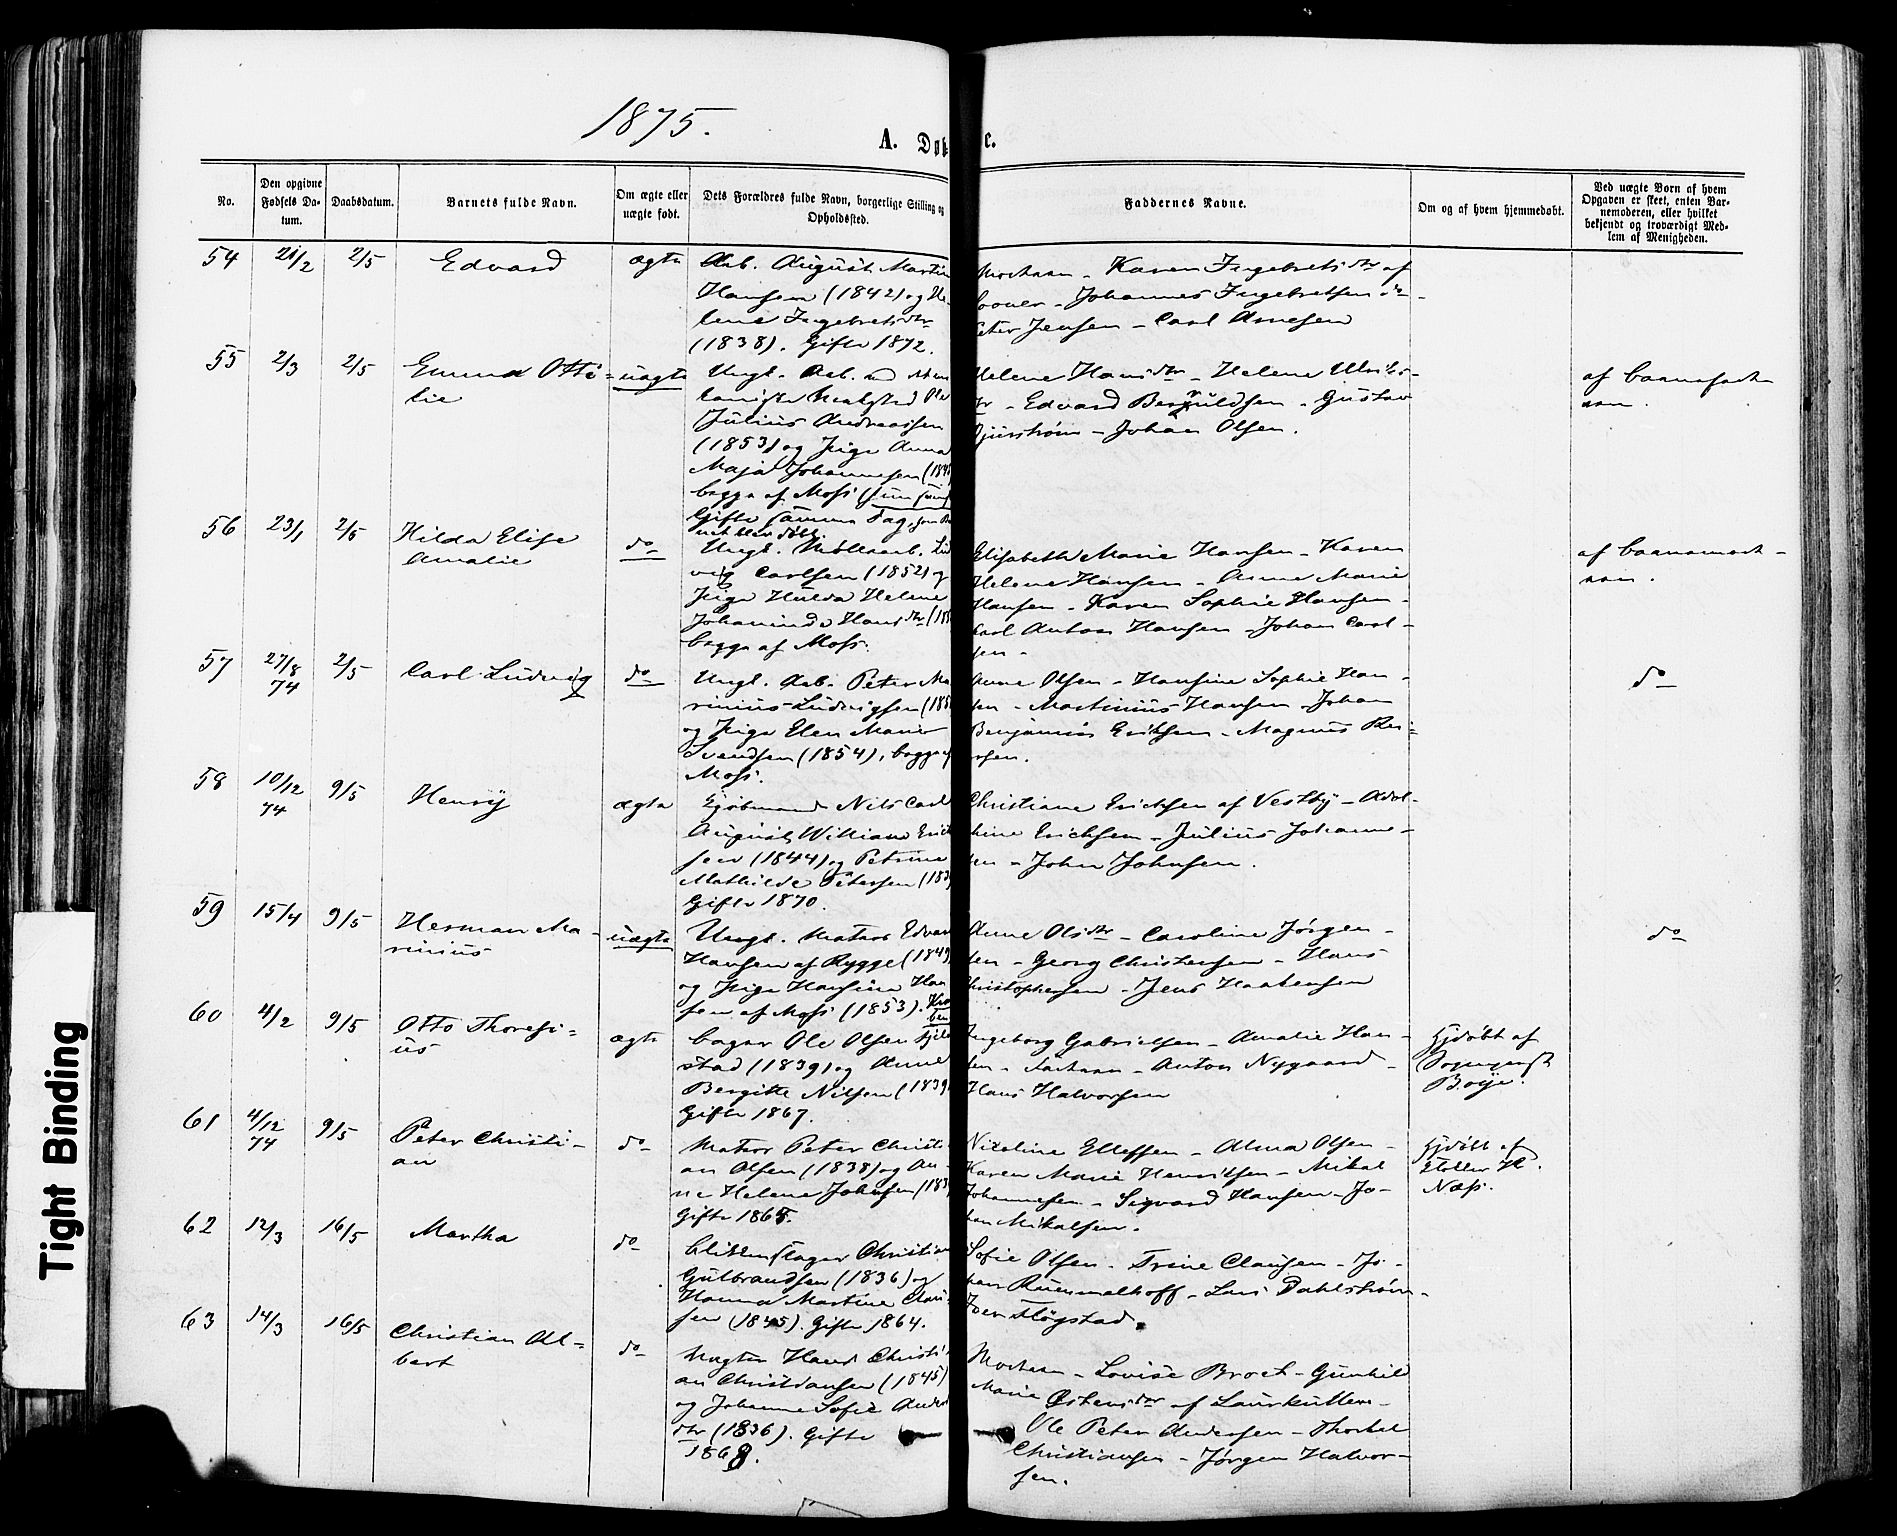 1875.
A. Døb
c.
No.
Den opgivne Fødsels Da-tum.
Daabsdatum.
Barnets fulde Navn.
Om ægte eller uægte født.
Dets Forældres fulde Navn, borgerlige Stilling og Opholdssted.
Faddernes Navne.
Om og af hvem hjemmedøbt.
Ved uægte Børn af hvem Opgaven er skeet, enten Bar-nemoderen, eller hvilket bekjendt og troværdigt Med-lem af Menigheden.
54 21/2 2/5 Edvard ægte
Arb. August Martin
Hansen (1842) og He-
lene Ingebretsdtr
(1838). Gifte 1872.
Karen Ingebretsdtr af
Johannes Ingebretsen
Jensen - Carl Arnesen
55 2/3 2/5 Emma Otti-
lie
uægte
Ungk. Arb.
Julius Andreassen
(1853) og Pige Anna
Maja Johannesen
begge af Moss
Gifte samme Dag, som
blev døbt.
Helene Hansdtr - Helene
Edvard - Gustav
Johan Olsen.
af Barnefad-
eren.
56 23/1 2/5 Hilda Elise
Amalie
do
Ungk. Møllearb.
Carlsen (1852) og
Pige Hulda Helene
Hansdtr
begge af Moss.
Elisabeth Marie Hansen - Karen
Helene Hansen - Anne Marie
Hansen - Karen Sophie Hansen -
Carl Anton Hansen - Johan Carl-
sen -
af Barnemod-
eren.
57 27/8 74 2/5 Carl Ludvig
do
Ungk. Arb. Peter Ma
rinius Ludvigsen
og Pige Elen Marie
Svendsen (1854), begge af
Moss.
Anne Olsen - Hansine Sophie Han-
sen - Martinius Hansen - Johan
Benjamin Eriksen - Magnus
do
58 10/12 74 9/5 Henry
ægte
Kjøbmand Nils Carl
August William Erich
sen (1844) og Petrine
Mathilde Petersen
Gifte 1870.
Christiane Erichsen af Vestby - Adol-
phine Erichsen - Julius Johanne-
sen - John Johnsen.
59 15/4 9/5 Herman Ma-
rinius
uægte
Ungk. Matros Edvard
Hansen af Rygge (1849)
og Pige Hansine Han
sen af Moss (1853).
Anne Olsdtr - Caroline Jørgen-
sen - Georg Christensen - Hans
Christophersen - Jens Haakensen
do
60 4/2 9/5 Otto Thoresi-
us
ægte
Bager Ole Olsen
stad (1839) og Anne
Bergitte Nilsen (1839
Gifte 1867.
Ingeborg Gabrielsen - Amalie Han-
sen - Faderen - Anton Nygaard -
Hans Halvorsen
Hjdøbt af
Sogneprest
Boye.
61 4/12 74 9/5 Peter Christi-
an
do
Matros Peter Christi-
an Olsen (1838) og An-
ne Helene Johnsen
Gifte 1865.
Nikoline Ellefsen - Alma Olsen -
Karen Marie Henriksen - Mikal
Johannesen - Sigvard Hansen - Jo-
han Mikalsen.
Hjdøbt af
Næss.
62 12/3 16/5 Martha
do
Blikkenslager Christian
Gulbrandsen (1836) og
Hanna Martine Clau-
sen (1845). Gifte 1864.
Sofie Olsen - Trine Clausen - Jo-
han - Lars Dahlstrøm -
Iver Fløgstad.
63 14/3 16/5 Christian Al-
bert
do
Vægter Hans Christi-
an Christiansen (1845)
og Johanne Sofie Anders
dtr (1836). Gifte
1868.
Moderen - Lovise Broct - Gunhild
Marie Østensdtr af
Ole Peter Andersen - Thorkel
Christiansen - Jørgen Halvor-
sen.
Tight Binding